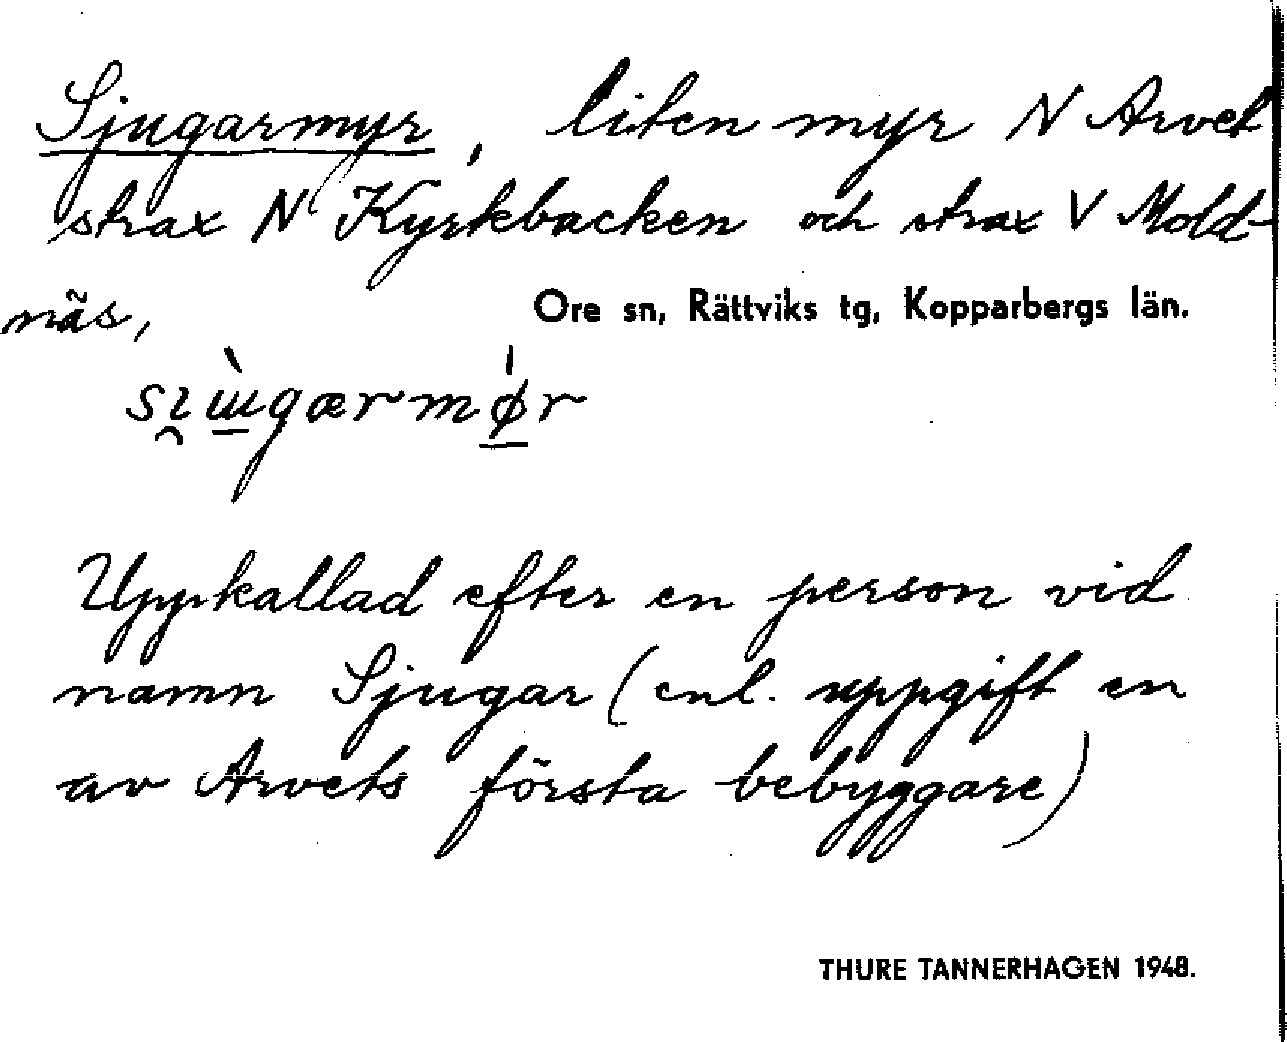 Sjugarmyr, liten myr N Arvet
strax N Kyrkbacken och strax V Mold-
näs,
Ore sn, Rättviks tg, Kopparbergs län.
Uppkallad efter en person vid
namn Sjugar (enl. uppgift en
av Arvets första bebyggare)
THURE TANNERHAGEN 1948.